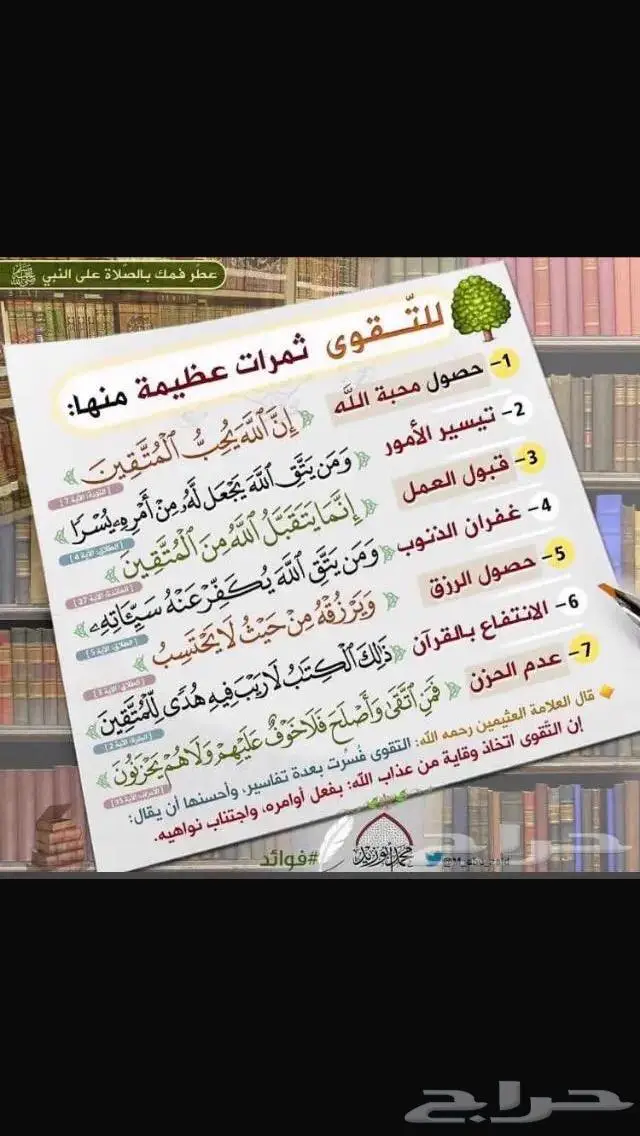 عطّر فمك بالصّلاة على النبي ﷺ
للتّــقوى ثمرات عظيمة منها:
1- حصول محبة اللَّه
﴿إِنَّ ٱللَّهَ يُحِبُّ ٱلْمُتَّقِينَ﴾
[التوبة: الآية 7]
2- تيسير الأمور
﴿وَمَن يَتَّقِ ٱللَّهَ يَجْعَل لَّهُۥ مِنْ أَمْرِهِۦ يُسْرًا﴾
[الطلاق: الآية 4]
3- قبول العمل
﴿إِنَّمَا يَتَقَبَّلُ ٱللَّهُ مِنَ ٱلْمُتَّقِينَ﴾
[المائدة: الآية 27]
4- غفران الذنوب
﴿وَمَن يَتَّقِ ٱللَّهَ يُكَفِّرْ عَنْهُ سَيِّـَٔاتِهِۦ﴾
[الطلاق: الآية 5]
5- حصول الرزق
﴿وَيَرْزُقْهُ مِنْ حَيْثُ لَا يَحْتَسِبُ﴾
[الطلاق: الآية 3]
6- الانتفاع بالقرآن
﴿ذَٰلِكَ ٱلْكِتَٰبُ لَا رَيْبَ فِيهِ هُدًى لِّلْمُتَّقِينَ﴾
[البقرة: الآية 2]
7- عدم الحزن
﴿فَمَنِ ٱتَّقَىٰ وَأَصْلَحَ فَلَا خَوْفٌ عَلَيْهِمْ وَلَا هُمْ يَحْزَنُونَ﴾
[الأعراف: الآية 35]
قال العلامة العثيمين رحمه الله: التقوى فُسِّرت بعدة تفاسير، وأحسنها أن يقال:
إن التّقوى اتخاذ وقاية من عذاب الله: بفعل أوامره، واجتناب نواهيه.
#فوائد
حراج
حراج